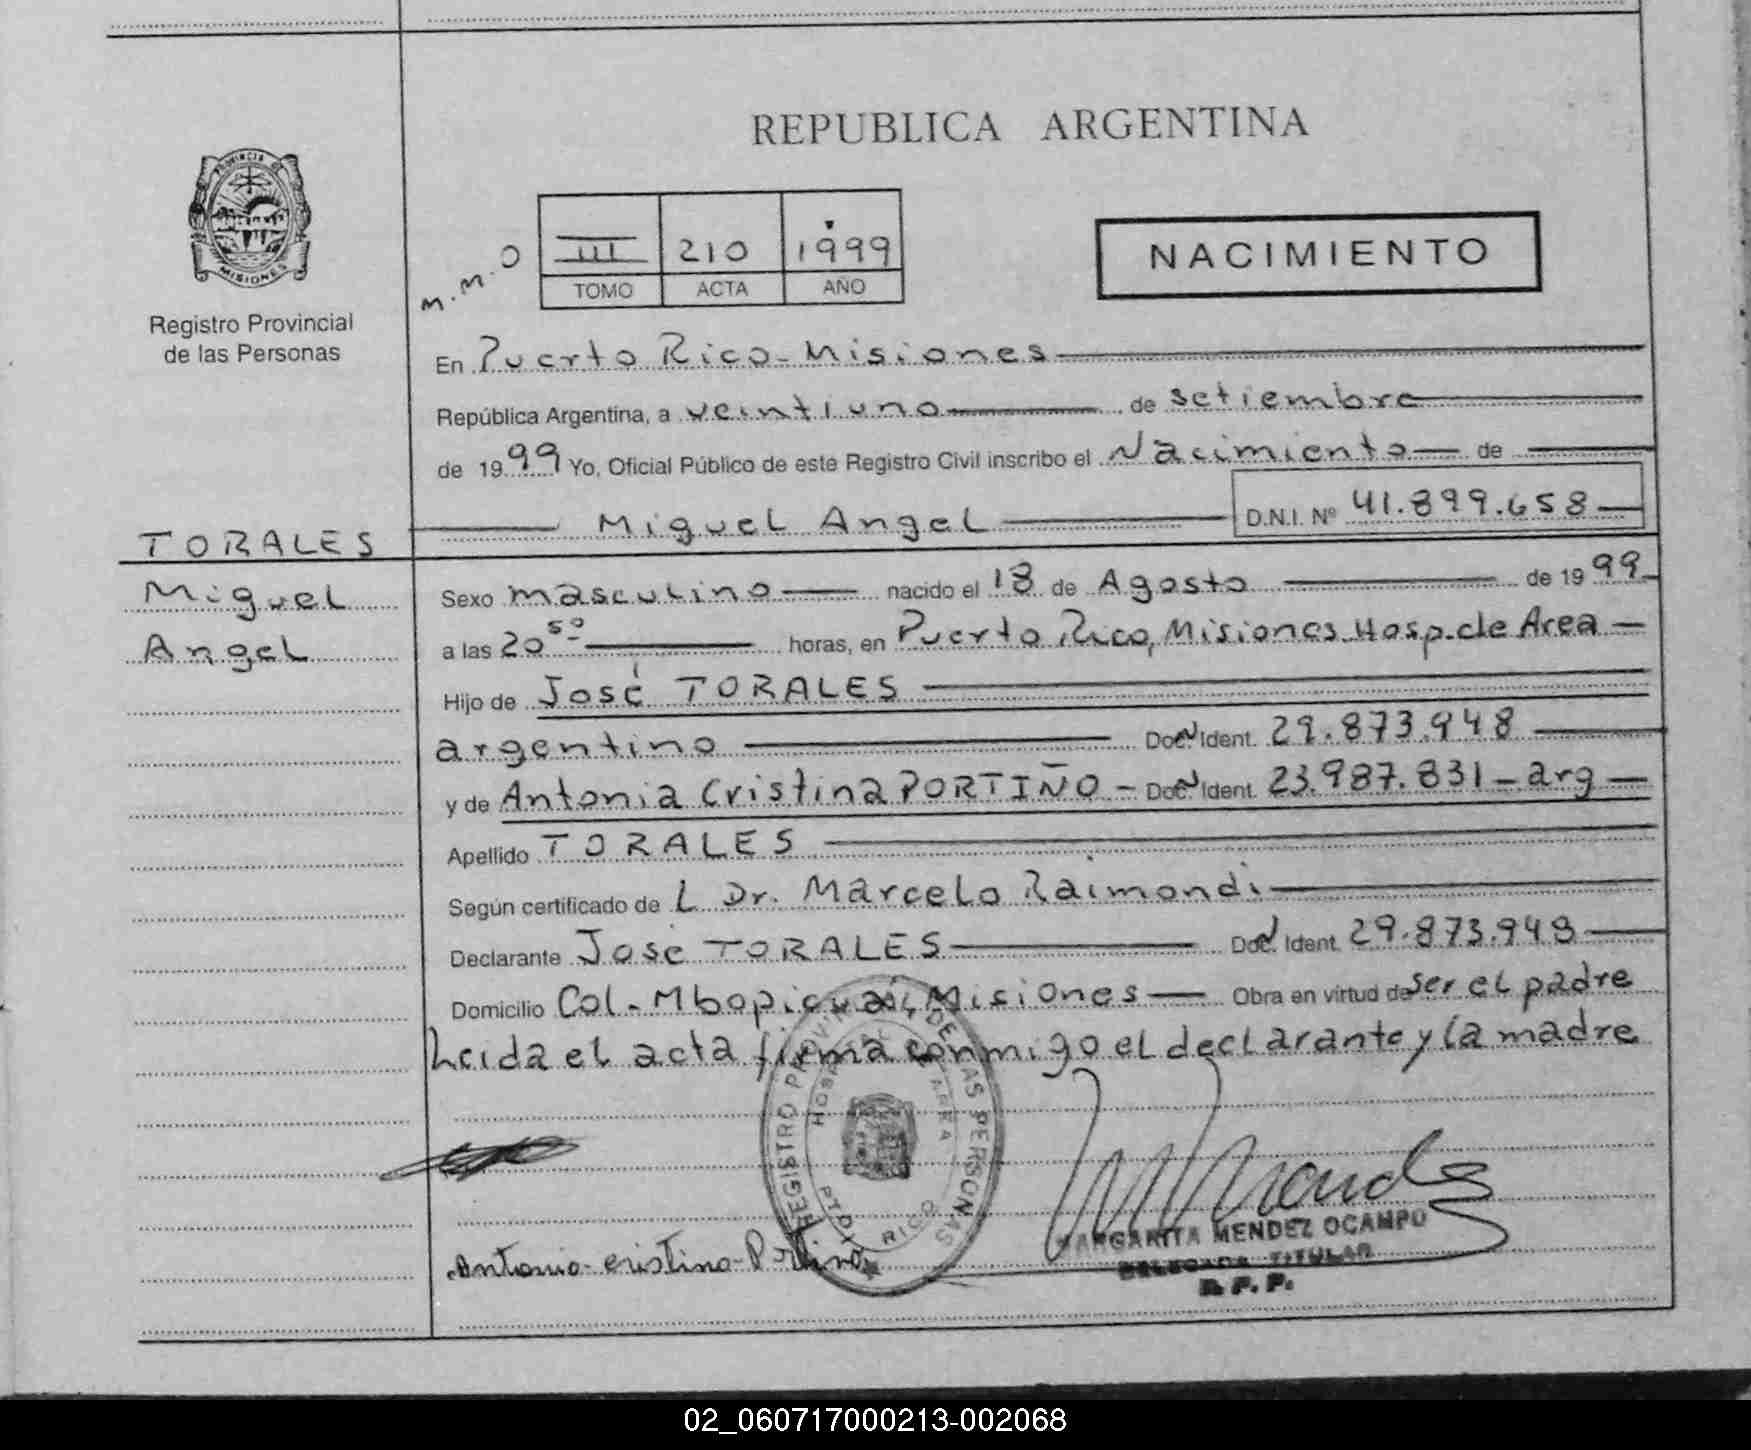 REPUBLICA ARGENTINA
PROVINCIA DE MISIONES
Registro Provincial
de las Personas
M.M.O
III 210 1999
TOMO ACTA AÑO
NACIMIENTO
En Puerto Rico-Misiones
República Argentina, a veintiuno de setiembre
de 1999 Yo, Oficial Público de este Registro Civil inscribo el Nacimiento de
Miguel Angel D.N.I. Nº 41.899.658
TORALES
Miguel
Angel
Sexo masculino nacido el 18 de Agosto de 1999
a las 20 50 horas, en Puerto Rico, Misiones Hosp. de Area
Hijo de José TORALES
argentino Doc. Ident. 29.873.948
y de Antonia Cristina PORTIÑO - Doc. Ident. 23.987.831 - arg
Apellido TORALES
Según certificado de L Dr. Marcelo Raimondi
Declarante José TORALES Doc. Ident. 29.873.948
Domicilio Col. Mbopicuá, Misiones Obra en virtud de ser el padre
Leida el acta firma conmigo el declarante y la madre
REGISTRO PROVINCIAL DE LAS PERSONAS
HOSPITAL DE AREA
PTO. RICO
Antonia Cristina Portiño
MARGARITA MENDEZ OCAMPO
DELEGADA TITULAR
R.P.P.
02_060717000213-002068